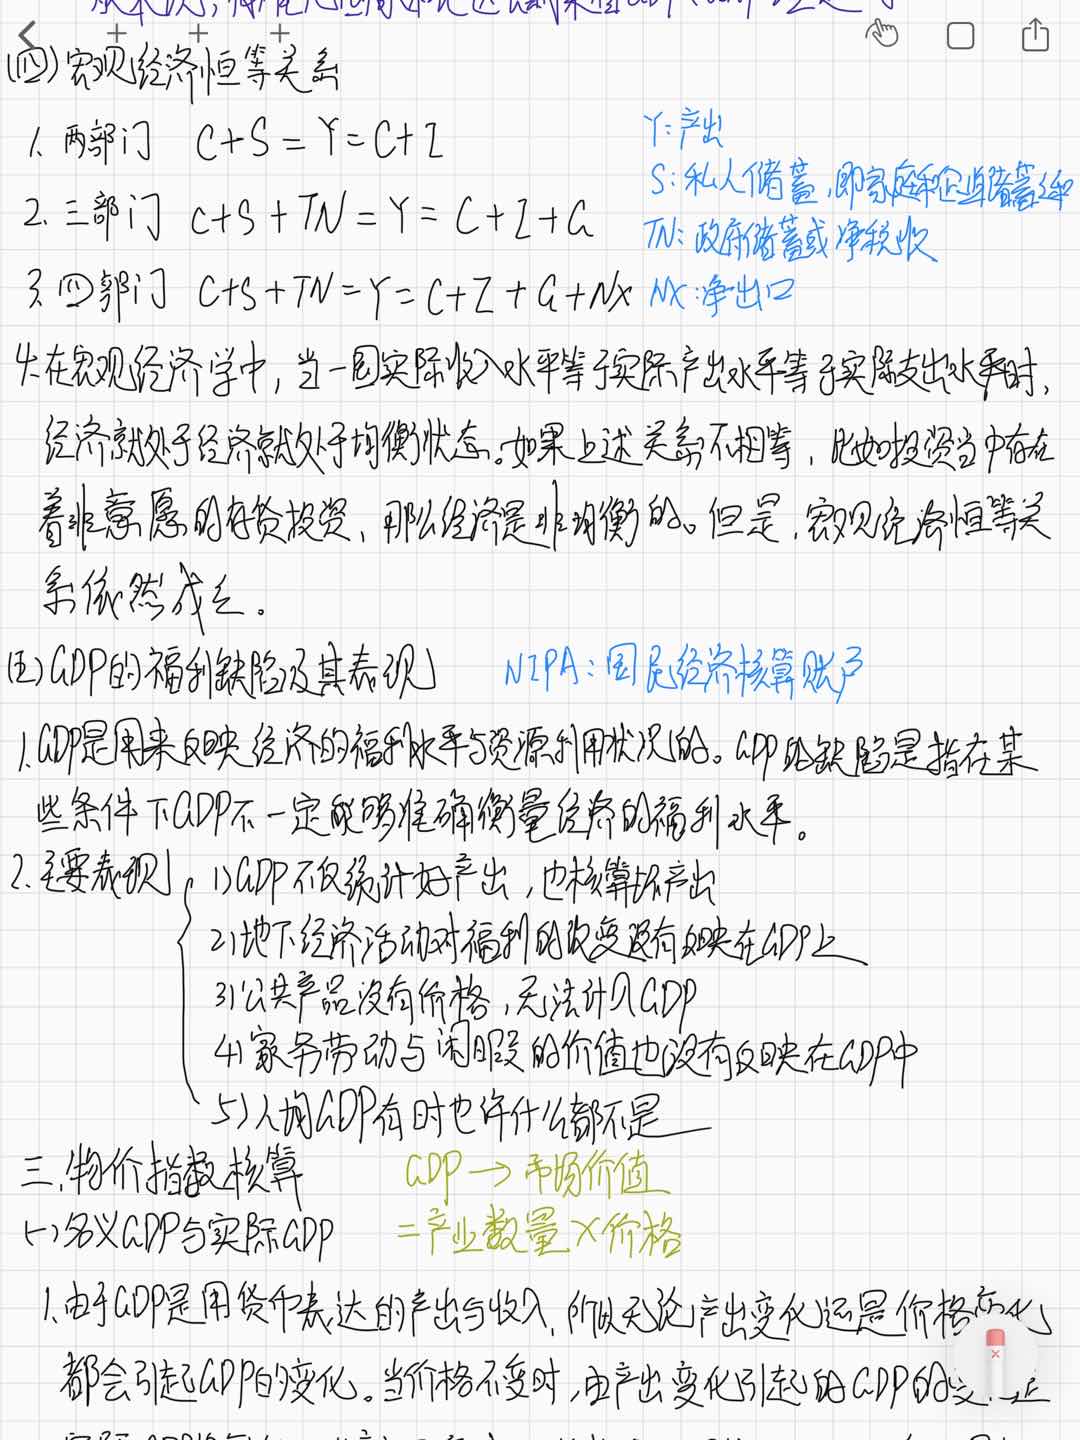 (四)宏观经济恒等关系
1. 两部门 C+S=Y=C+I
Y:产出
S:私人储蓄,即家庭和企业储蓄之和
2. 三部门 C+S+TN=Y=C+I+G
TN:政府储蓄或净税收
3. 四部门 C+S+TN=Y=C+I+G+NX
NX:净出口
4.在宏观经济学中,当一国实际收入水平等于实际产出水平等于实际支出水平时,
经济就处于经济就处于均衡状态。如果上述关系不相等,比如投资当中存在
着非意愿的存货投资,那么经济是非均衡的。但是,宏观经济恒等关
系依然成立。
(五)GDP的福利缺陷及其表现
NIPA:国民经济核算账户
1.GDP是用来反映经济的福利水平与资源利用状况的。GDP的缺陷是指在某
些条件下GDP不一定能够准确衡量经济的福利水平。
2.主要表现
1)GDP不仅统计好产出,也核算坏产出
2)地下经济活动对福利的改变没有反映在GDP上
3)公共产品没有价格,无法计入GDP
4)家务劳动与闲暇的价值也没有反映在GDP中
5)人均GDP有时也许什么都不是
三.物价指数核算
GDP→市场价值
(一)名义GDP与实际GDP
=产业数量×价格
1.由于GDP是用货币表达的产出与收入,所以无论产出变化还是价格变化
都会引起GDP的变化。当价格不变时,由产出变化引起的GDP的变